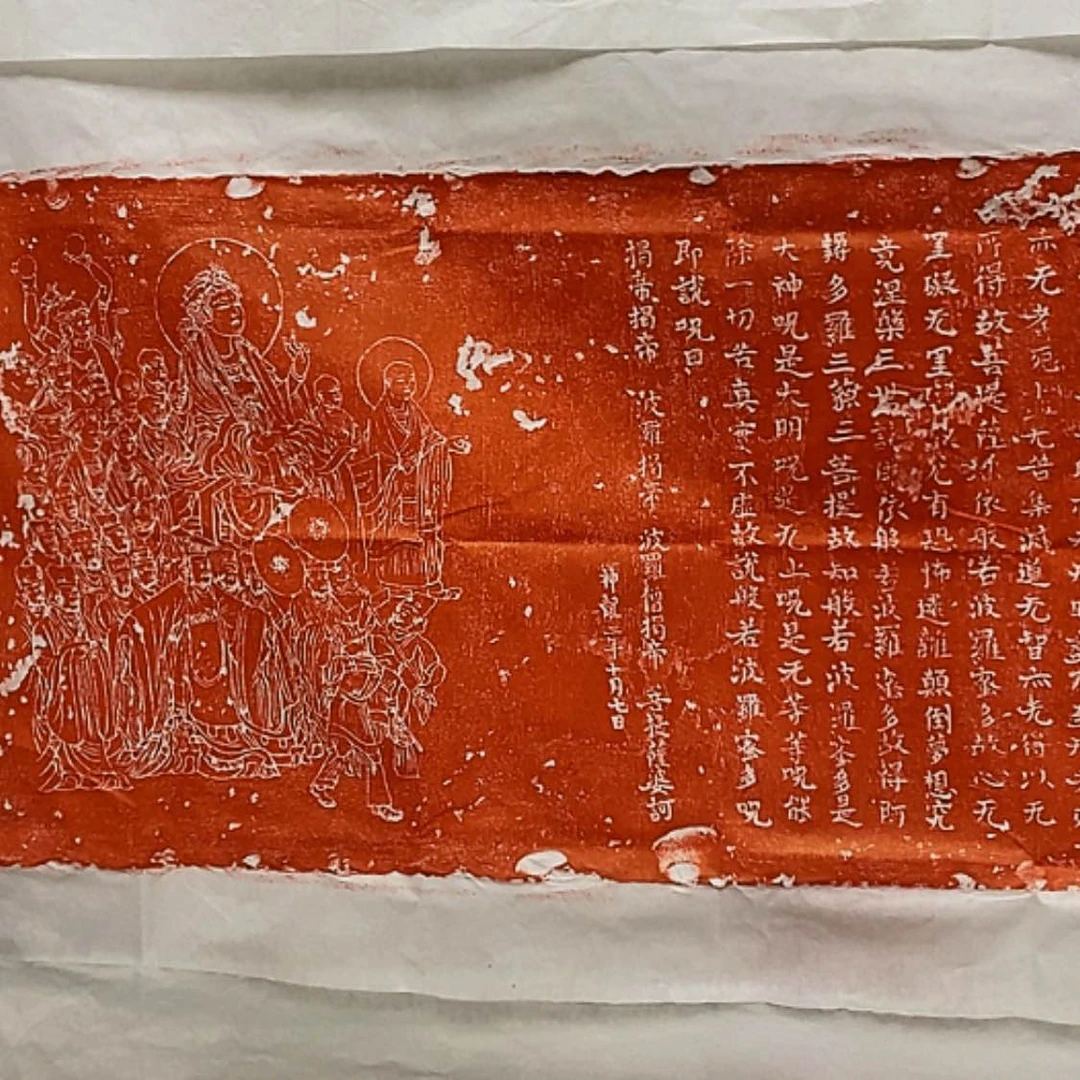 亦无老死无苦集滅道无智亦无得以无
所得故菩提薩埵依般若波羅蜜多故心无
罣礙无罣礙故无有恐怖遠離顛倒夢想究
竟涅槃三世諸佛依般若波羅蜜多故得阿
耨多羅三藐三菩提故知般若波羅蜜多是
大神呪是大明呪是无上呪是无等等呪能
除一切苦真實不虛故說般若波羅蜜多呪
即說呪曰
揭帝揭帝 波羅揭帝 波羅僧揭帝 菩提薩婆訶
神龍二年十月七日